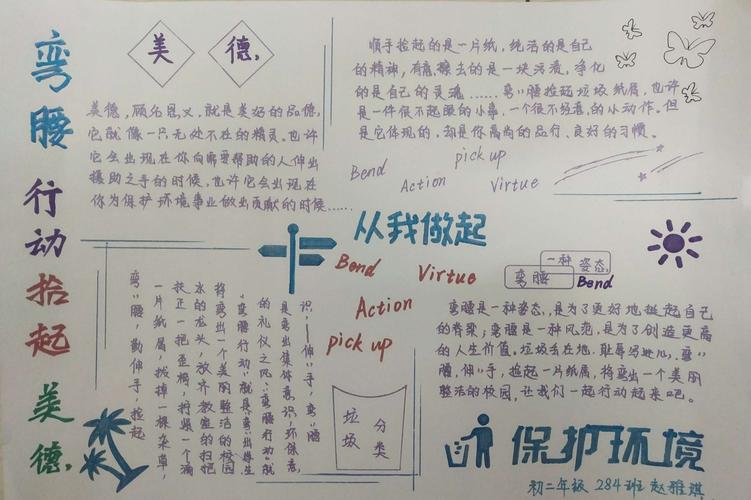 弯腰行动拾起美德,
美德,
美德,顾名思义,就是美好的品德,
它就像一只无处不在的精灵。也许
它会出现在你向需要帮助的人伸出
援助之手的时候,也许它会出现在
你为保护环境事业做出贡献的时候……
顺手捡起的是一片纸,纯洁的是自己
的精神,有意擦去的是一块污渍,净化
的是自己的灵魂……弯弯腰捡起垃圾纸屑,也许
是一件很不起眼的小事,一个很不经意的小动作。但
是它体现的,却是你高尚的品行、良好的习惯。
Bend
Action
pick up
Virtue
从我做起
Bend
Virtue
Action
pick up
识,伸伸手,弯弯腰
是弯出集体意识,环保意
的礼仪之风;弯腰行动就
弯腰行动,就是弯出师生
将弯出一个美丽整洁的校园
水的龙头,放齐教室的扫把
扶正一把歪椅,拧紧一个滴
一片纸屑,拔掉一棵杂草,
弯弯腰,勤伸手,捡起
垃圾分类
一种姿态,
弯腰
Bend
弯腰是一种姿态,是为了更好地挺起自己
的脊梁;弯腰是一种风范,是为了创造更高
的人生价值。垃圾丢在地,耻辱写进心,弯弯
腰,伸伸手,捡起一片纸屑,将弯出一个美丽
整洁的校园,让我们一起行动起来吧。
保护环境
初二年级 284班 赵雅琪